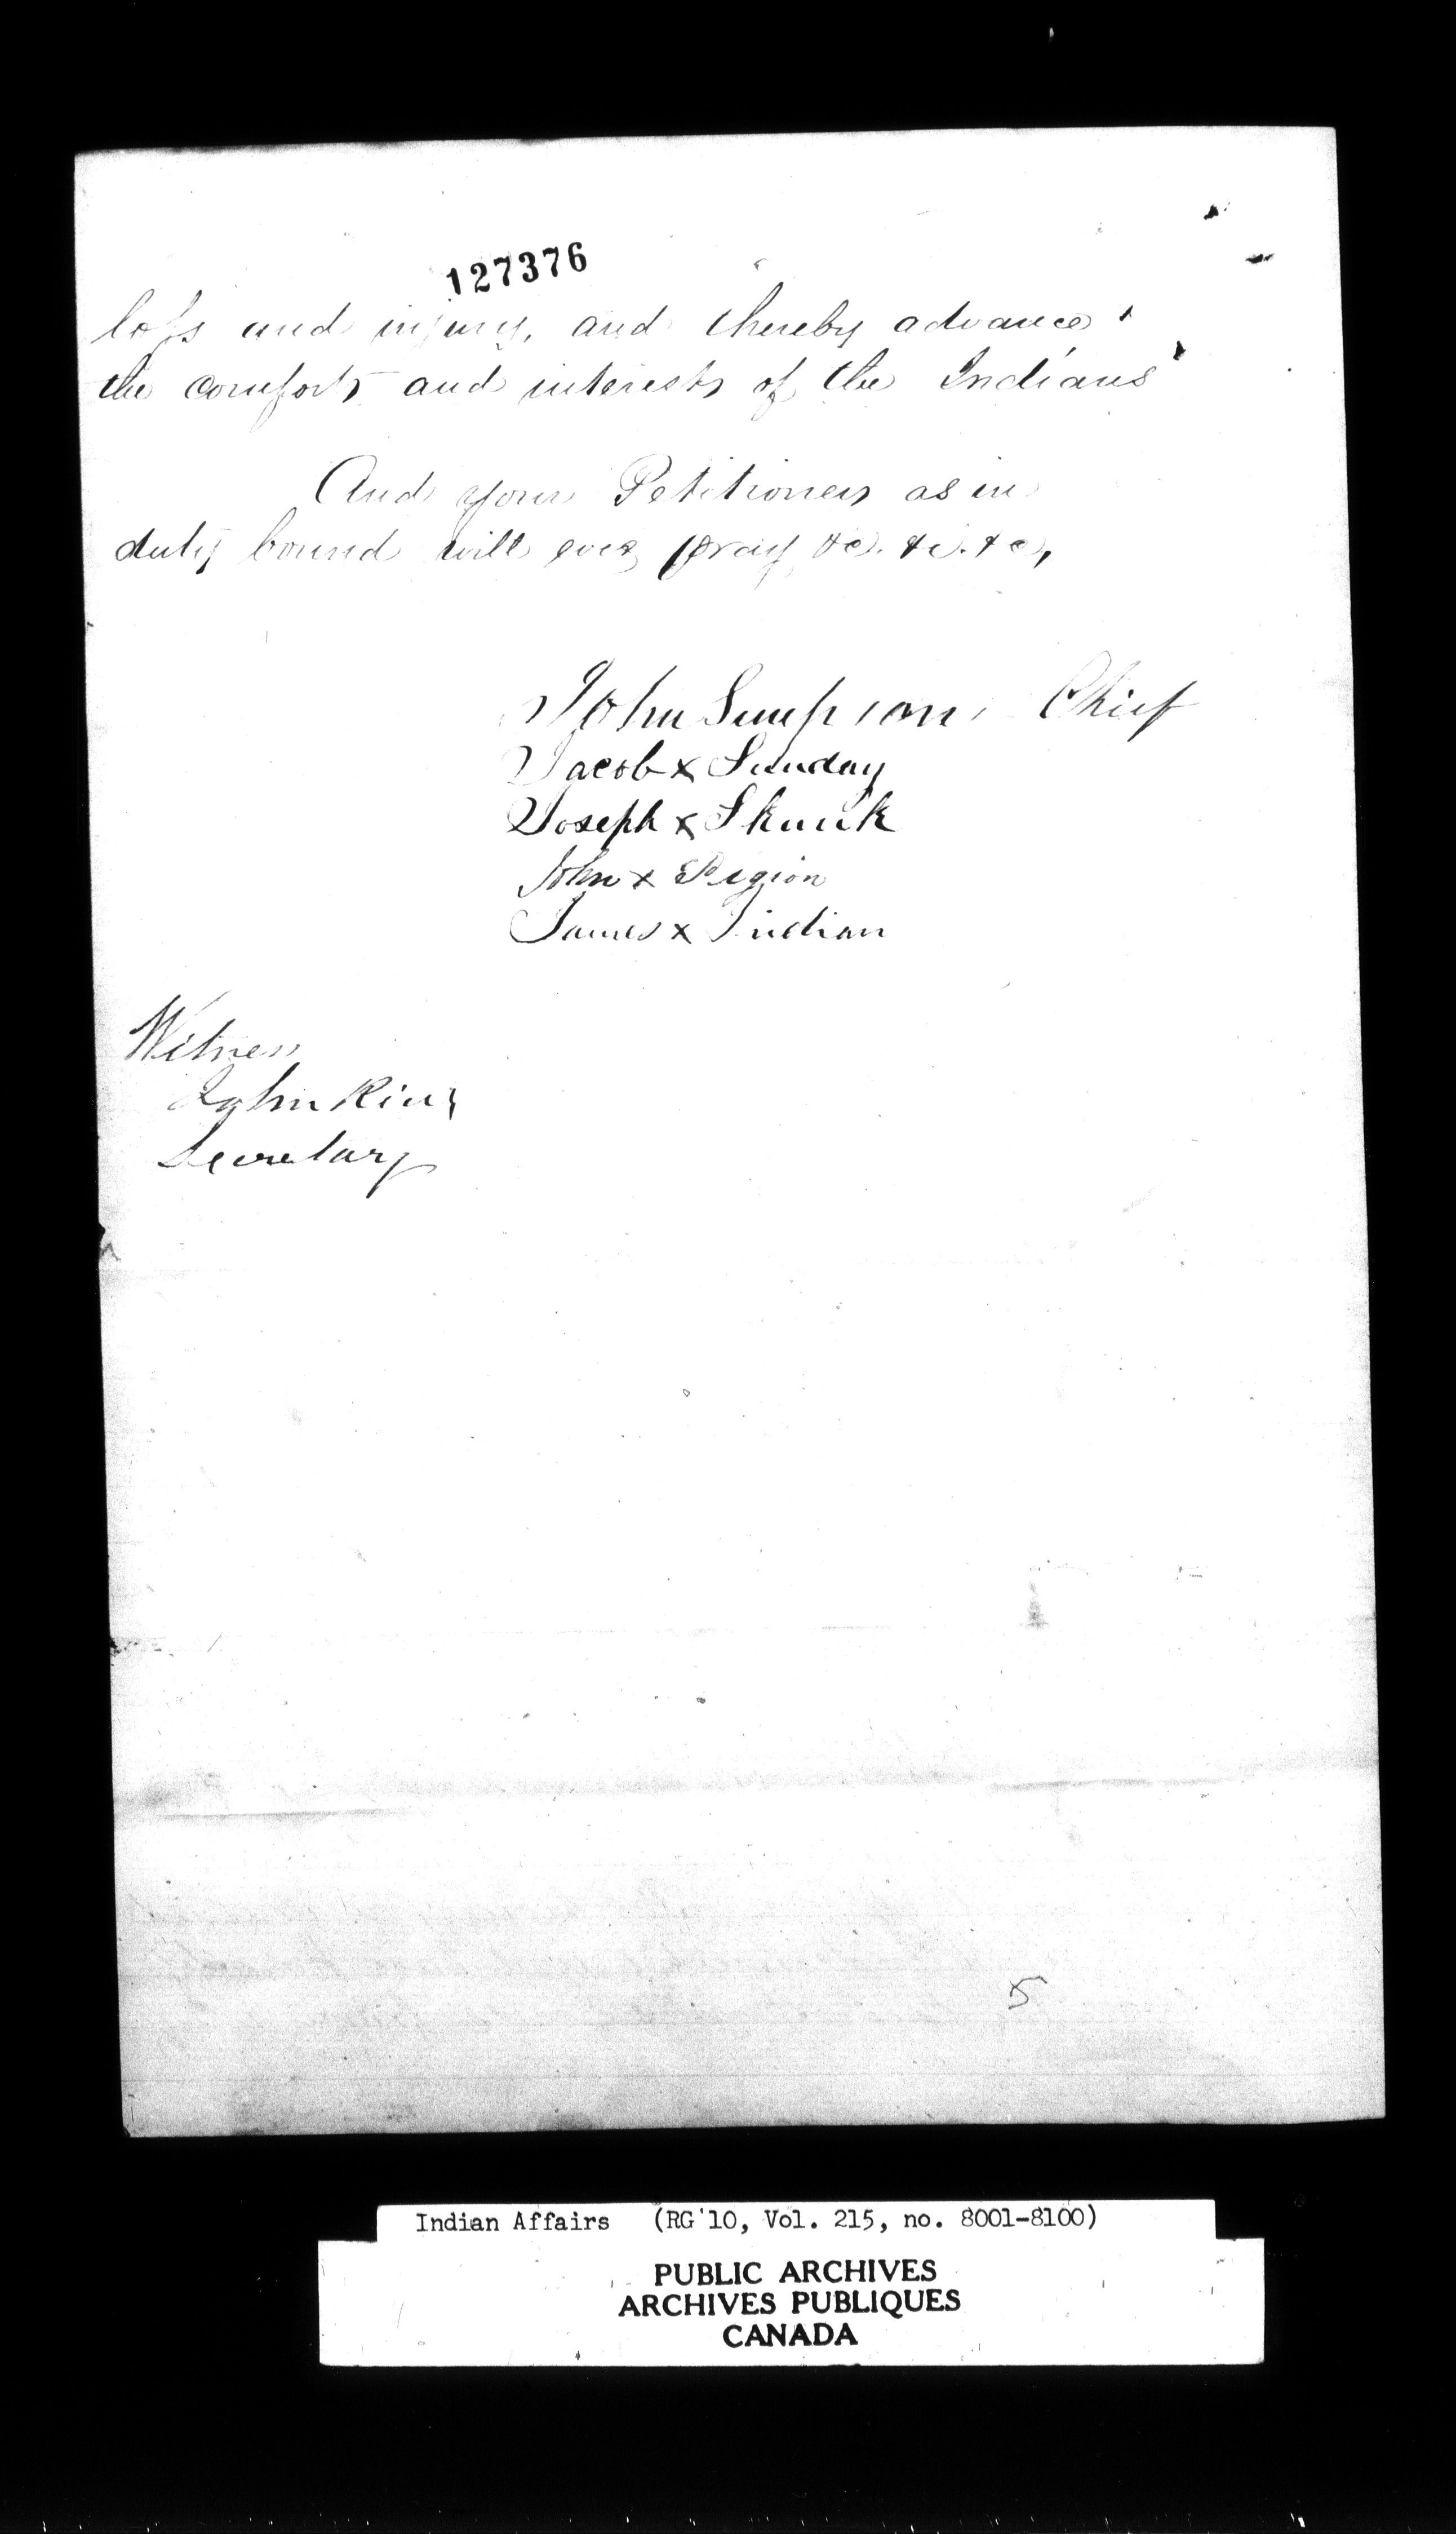 127376
loss and injury, and thereby advance
the comforts and interests of the Indians
And your Petitioners as in
duty bound will ever pray &c. &c. &c,
John Simpson Chief
Jacob x Sunday
Joseph x Skunk
John x Pigion
James x Indian
Witness
John King
Secretary
5
Indian Affairs (RG 10, Vol. 215, no. 8001-8100)
PUBLIC ARCHIVES
ARCHIVES PUBLIQUES
CANADA